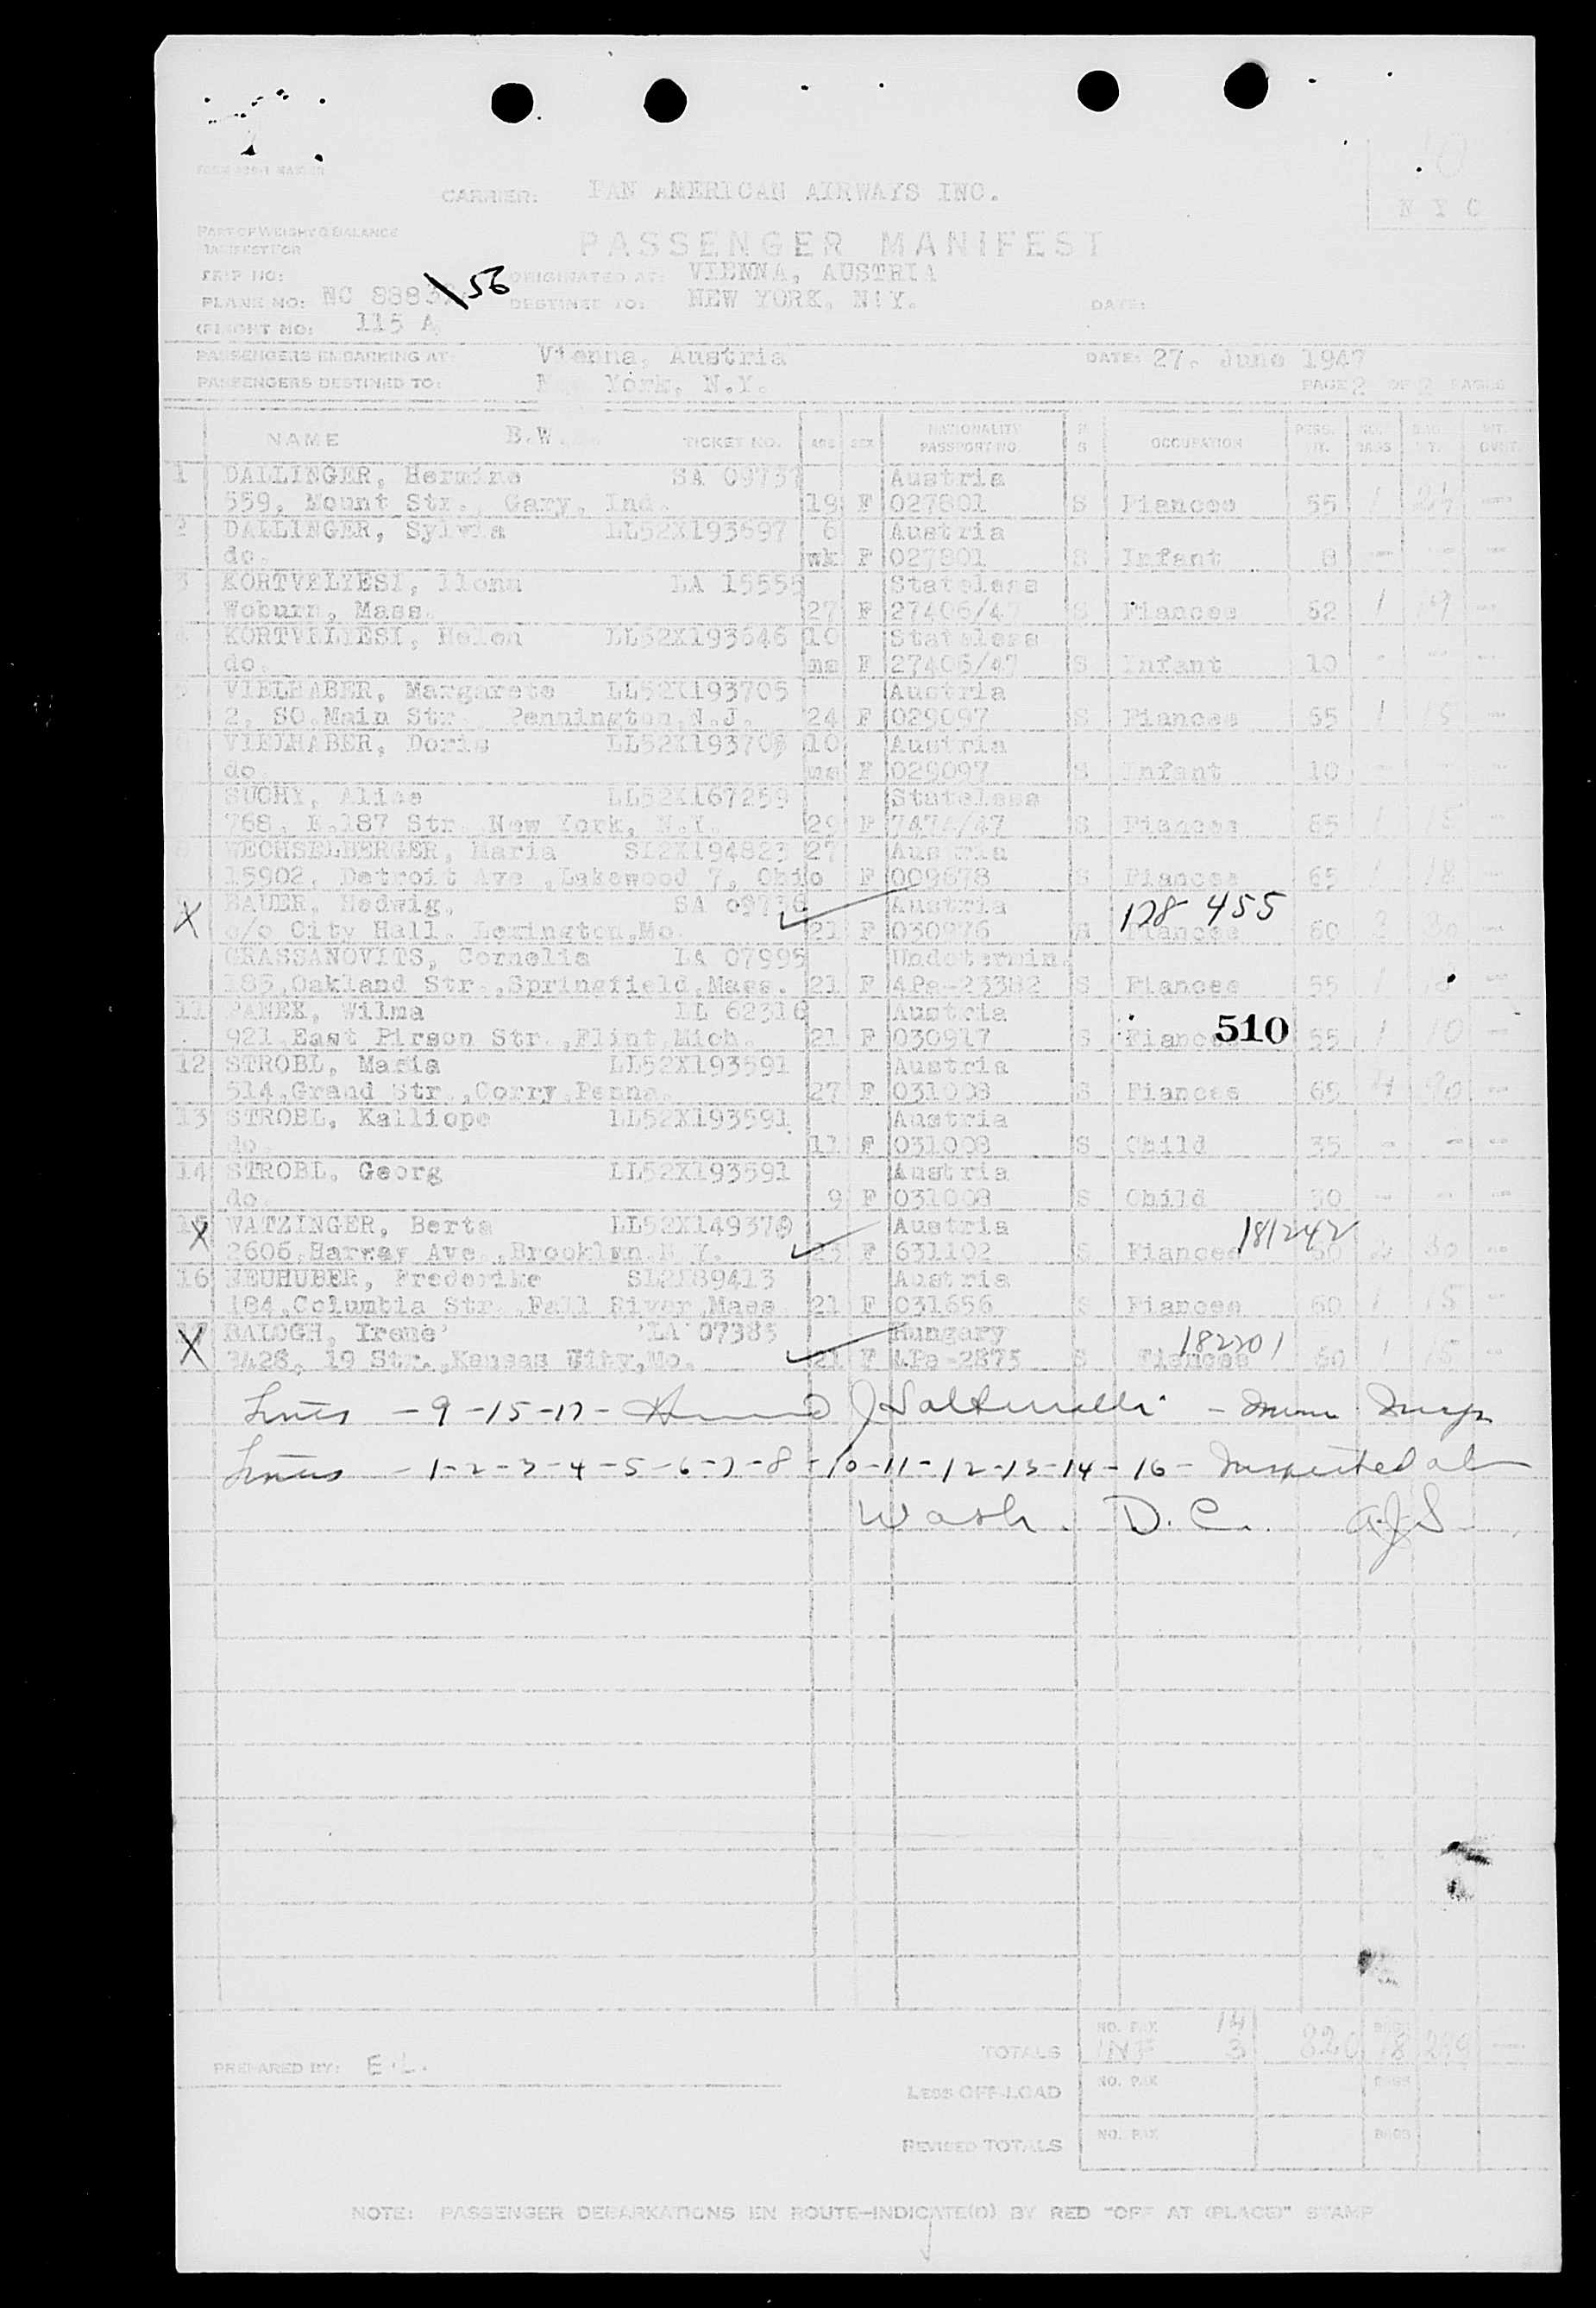 CARRIER: PAN AMERICAN AIRWAYS INC.
N Y C
PART OF WEIGHT & BALANCE
MANIFEST FOR
PASSENGER MANIFEST
TRIP NO:
ORIGINATED AT: VIENNA, AUSTRIA
PLANE NO: NC 8883 \56
DESTINED TO: NEW YORK, N.Y.
DATE:
FLIGHT NO: 115 A
PASSENGERS EMBARKING AT: Vienna, Austria
DATE: 27. June 1947
PASSENGERS DESTINED TO: York, N.Y.
PAGE 2 OF 2 PAGES
NAME B.W. TICKET NO. AGE SEX NATIONALITY PASSPORT NO. OCCUPATION
1 DALLINGER, Hermine SA 09737 Austria
559, Mount Str., Gary, Ind. 19 F 027801 S Fiancee 55 1 --
2 DALLINGER, Sylvia LL52X193697 6 Austria
do. wk F 027801 S Infant 8 -- -- --
3 KORTVELYESI, Ilona LA 15555 Stateless
Woburn, Mass. 27 F 27406/47 S Fiancee 52 1 19 --
KORTVELYESI, Helen LL52X193646 10 Stateless
do. ms F 27406/47 S Infant 10 - -- --
5 VIELHABER, Margarete LL52X193705 Austria
2, SO.Main Str. Pennington,N.J. 24 F 029097 S Fiancee 55 1 15 --
VIELHABER, Doris LL52X19370 10 Austria
do ms F 029097 S Infant 10 - - --
SUCHY, Alice LL52X167259 Stateless
768, E.187 Str. New York, N.Y. 29 F 7474/47 S Fiancee 65 1 15 --
WECHSELBERGER, Maria SL2X194823 27 Austria
15902, Detroit Ave.,Lakewood 7, Ohio F 009678 S Fiancee 65 1 18 --
X BAUER, Hedwig, SA 09736 Austria 128 455
c/o City Hall. Lexington,Mo. 21 F 030976 S Fiancee 60 --
GRASSANOVITS, Cornelia LA 07995 Undetermin.
185,Oakland Str.,Springfield,Mass. 21 F APa-23382 S Fiancee 55 1
11 PANEK, Wilma LL 62316 Austria
921,East Pirson Str.,Flint,Mich. 21 F 030917 S Fiancee 510 55 1 10 --
12 STROBL, Maria LL52X193591 Austria
514,Grand Str.,Corry,Penna. 27 F 031008 S Fiancee 65 4 90 --
13 STROBL, Kalliope LL52X193591 Austria
do. 11 F 031008 S Child 35 - - --
14 STROBL, Georg LL52X193591 Austria
do. 9 F 031008 S Child 30 - - --
15 X WATZINGER, Berta LL52X14937 Austria 181242
2606,Harway Ave.,Brooklyn N.Y. 23 F 631102 S Fiancee 60 2 30 --
16 NEUHUBER, Frederike SL2X89413 Austria
184,Columbia Str.,Fall River,Mass 21 F 031656 S Fiancee 60 1 15 --
17 X BALOGH, Irene LA 07385 Hungary 182201
3428, 19 Str.,Kansas City,Mo. 21 F APa-2875 S Fiancee 60 1 15 --
Lines - 9 - 15 - 17 -
Lines - 1 - 2 - 3 - 4 - 5 - 6 - 7 - 8 - 10 - 11 - 12 - 13 - 14 - 16 - Inspected at
Wash. D.C. A.J.S
NO. PAX 14 BAGS
TOTALS INF 3 820 18 --
PREPARED BY: E.L.
LESS OFF-LOAD NO. PAX BAGS
REVISED TOTALS NO. PAX BAGS
NOTE: PASSENGER DEBARKATIONS EN ROUTE—INDICATE(D) BY RED "OFF AT (PLACE)" STAMP